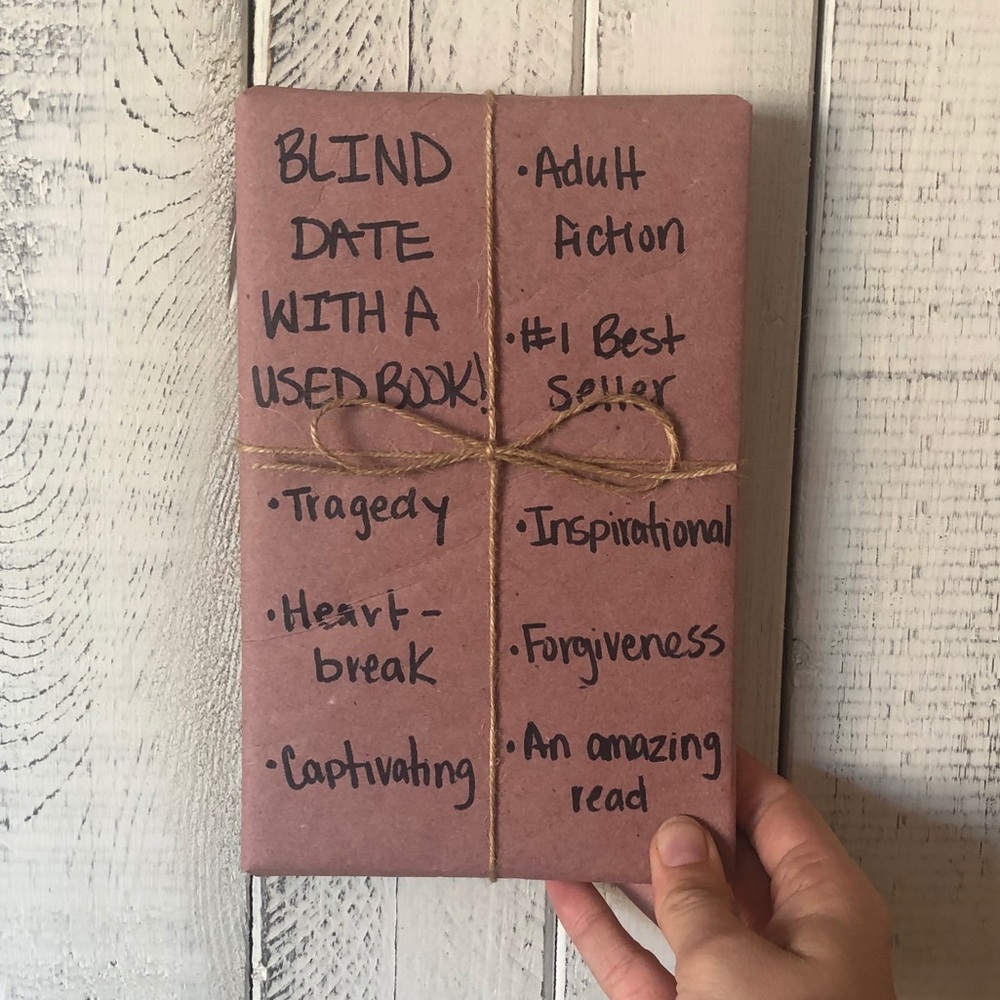 BLIND
DATE
WITH A
USED BOOK!
• Tragedy
• Heart-
break
• Captivating
• Adult
fiction
• #1 Best
Seller
• Inspirational
• Forgiveness
• An amazing
read